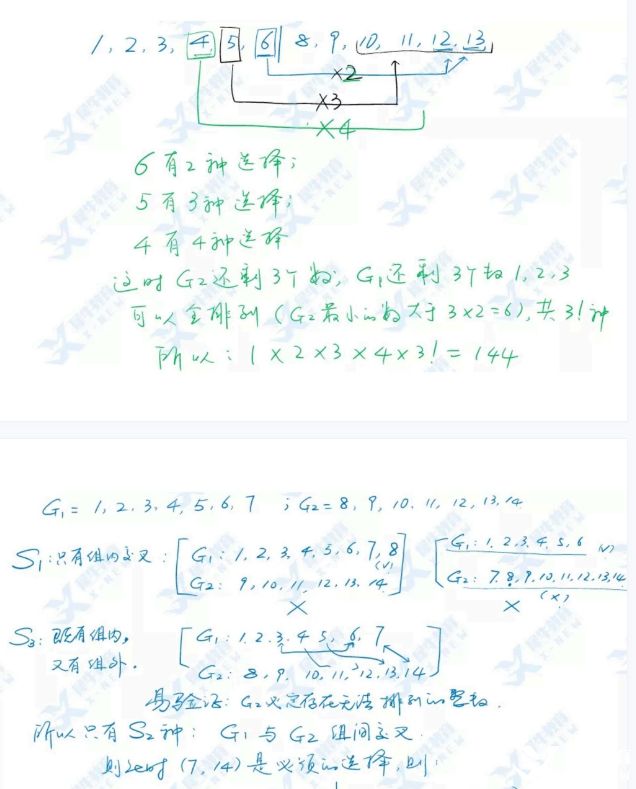 1, 2, 3, 4 5, 6 8, 9, 10, 11, 12, 13
×2
×3
×4
6有2种选择;
5有3种选择;
4有4种选择
这时G2还剩3个数, G1还剩3个数1, 2, 3
可以全排列(G2最小的数大于3×2=6), 共3!种
所以: 1×2×3×4×3! = 144
G1 = 1, 2. 3, 4, 5, 6, 7 ; G2 = 8, 9, 10. 11, 12, 13, 14
S1: 只有组内交叉: G1: 1, 2, 3, 4, 5, 6, 7, 8 (√) G1: 1, 2, 3, 4, 5, 6 (√)
G2: 9, 10, 11, 12, 13, 14 G2: 7. 8, 9, 10, 11, 12, 13, 14
× × (×)
S3: 既有组内, G1: 1. 2. 3, 4 5, 6, 7
又有组外. G2: 8, 9, 10, 11, 12, 13, 14
易验证: G2必定存在无法排列的整数.
所以只有S2种: G1与G2组间交叉
则此时(7, 14)是必须的选择, 则: